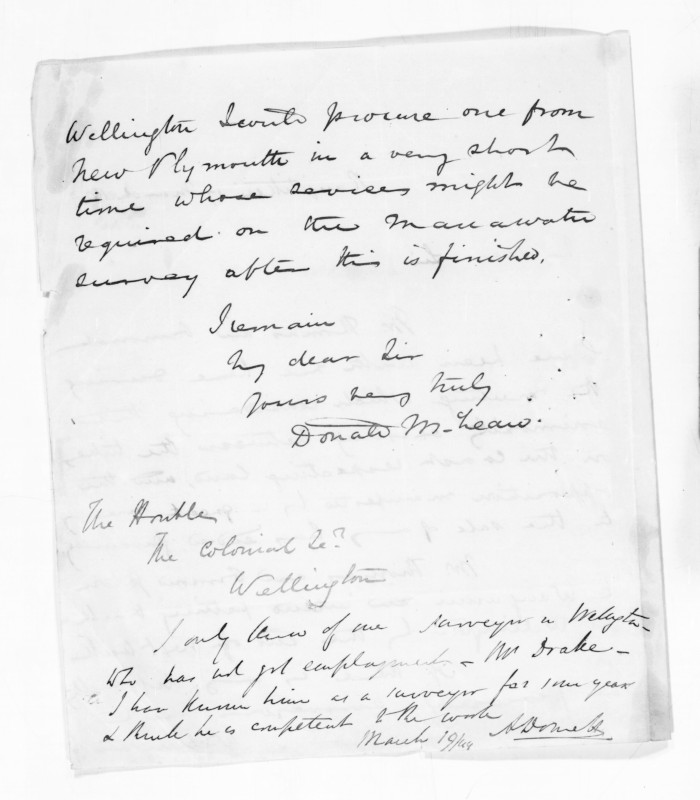 Wellington I could procure one from
New Plymouth in a very short
time whose sevices might be
required on the Manawatu
survey after this is finished.
I remain
My dear Sir
yours very truly
Donald McLean.
The Honble
The Colonial Secy
Wellington
I only know of one surveyor in Wellington
who has not got employment - Mr Drake -
I have known him as a surveyor for some years
& think he is competent to the work
March 19/49 ADomett